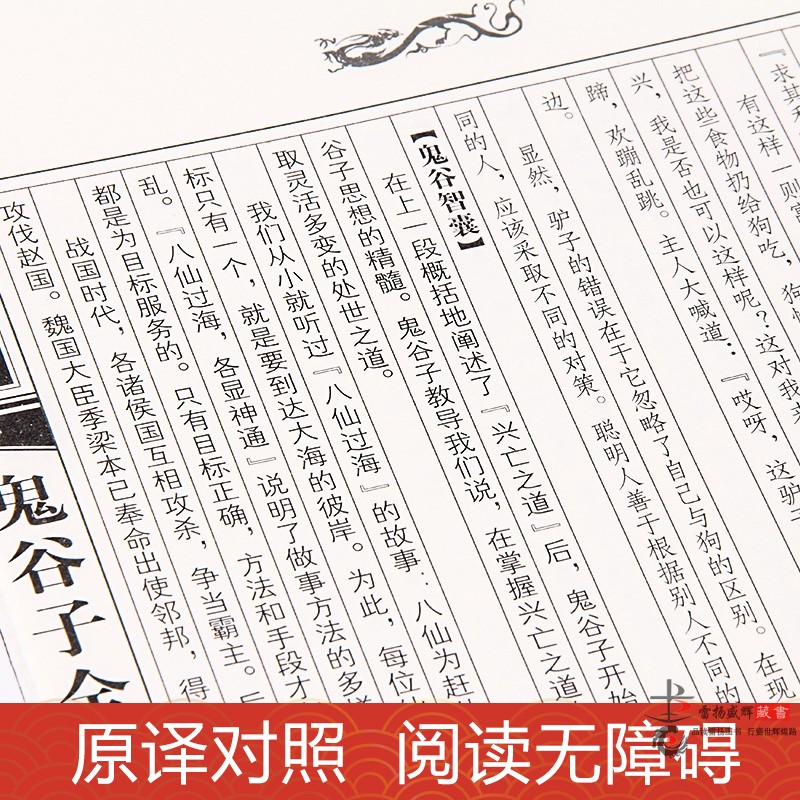 『求其
有这样一则
把这些食物扔给狗吃，狗
兴，我是否也可以这样呢？这对我来
蹄，欢蹦乱跳。主人大喊道：『哎呀，这驴
边。
显然，驴子的错误在于它忽略了自己与狗的区别。在现
同的人，应该采取不同的对策。聪明人善于根据别人不同的
【鬼谷智囊】
在上一段概括地阐述了『兴亡之道』后，鬼谷子开始
谷子思想的精髓。鬼谷子教导我们说，在掌握兴亡之道
取灵活多变的处世之道。
我们从小就听过『八仙过海』的故事：八仙为赶
标只有一个，就是要到达大海的彼岸。为此，每位
乱。『八仙过海，各显神通』说明了做事方法的多样
都是为目标服务的。只有目标正确，方法和手段才
战国时代，各诸侯国互相攻杀，争当霸主。
攻伐赵国。魏国大臣季梁本已奉命出使邻邦，得
鬼谷子全
雷扬盛辉藏書
品读雷扬图书 行盛世辉煌路
原译对照 阅读无障碍